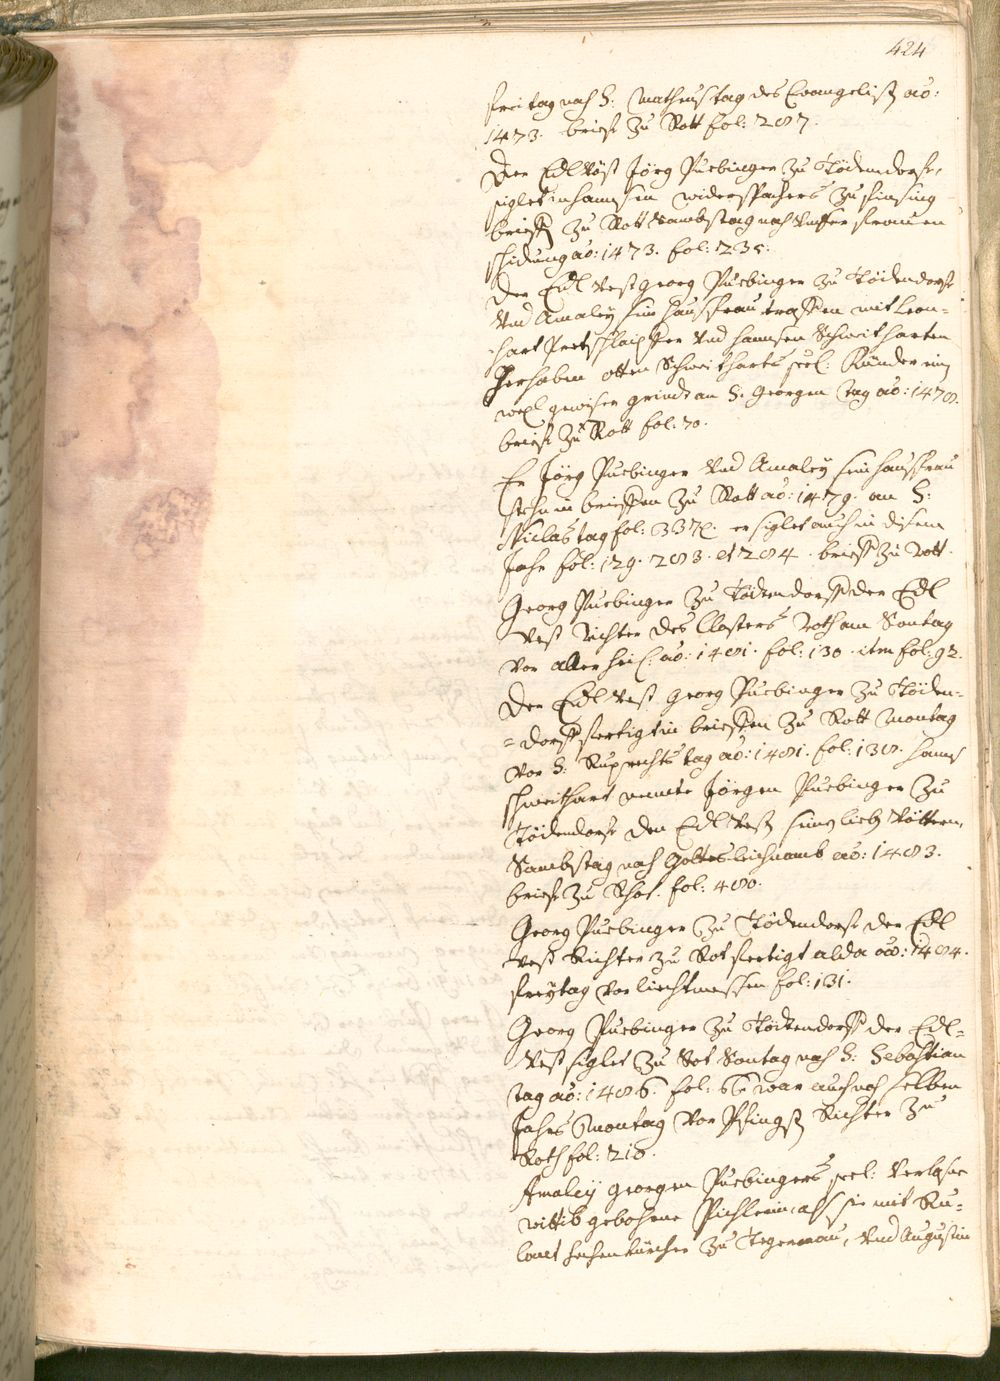 424
freitag nach S: Matheus tag des Evangelist aō:
1473. brieff zu Rott fol: 287.
Der Edl Vöst Jörg Puebinger zu Ködendorff,
siglet in hannsen widerspachers zu
brieff zu Rott Sambstag nach Vnser frauen
schidung aō: 1473. fol: 235.
Der Edl Vest Georg Puebinger zu Ködendorff
Vnd Amaley sein hausfrau treffen mit Leon-
hart Vnd hannsen Schweitharten
Gerhaben otten Schweitharts seel: Künder ein
wexl gewiser grindt an S: Georgen tag aō: 1478.
brieff zu Rott fol: 70.
Er Jörg Puebinger Vnd Amaley sein hausfrau
stehn in brieffen zu Rott aō: 1479. an S:
Niclas tag fol: 337. er siglet auch in disem
Jahr fol: 129. 283. et 284. brieff zu Rott.
Georg Puebinger zu Ködendorff der Edl
Vest Richter des Closters Roth am Sontag
vor aller heil: aō: 1481. fol: 130. item fol: 92.
Der Edl Vest Georg Puebinger zu Köden=
=dorff fertigt in brieffen zu Rott Montag
vor S: Ruprechts tag aō: 1481. fol: 138. Hanns
schweithart nennte Jörgen Puebinger zu
Ködendorff den Edl Vest seinen lieb Vöttern,
Sambstag nach Gottes leichnamb aō: 1483.
brieff zu Rhot. fol: 480.
Georg Puebinger zu Ködendorff der Edl
Vest Richter zu Rot fertigt alda aō: 1484.
freytag vor liechtmessen fol: 131.
Georg Puebinger zu Ködendorff der Edl=
Vest siglet zu Rot Sontag nach S: Sebastian
tag aō: 1486. fol: 66. war auch noch selben
Jahrs Montag vor Pfingst Richter zu
Roth fol: 218.
Amaley Georgen Puebingers seel: Verlasne
wittib gebohrne Pichlerin, alss sie mit Ru=
lant zu Tegernau, Vnd Augustin